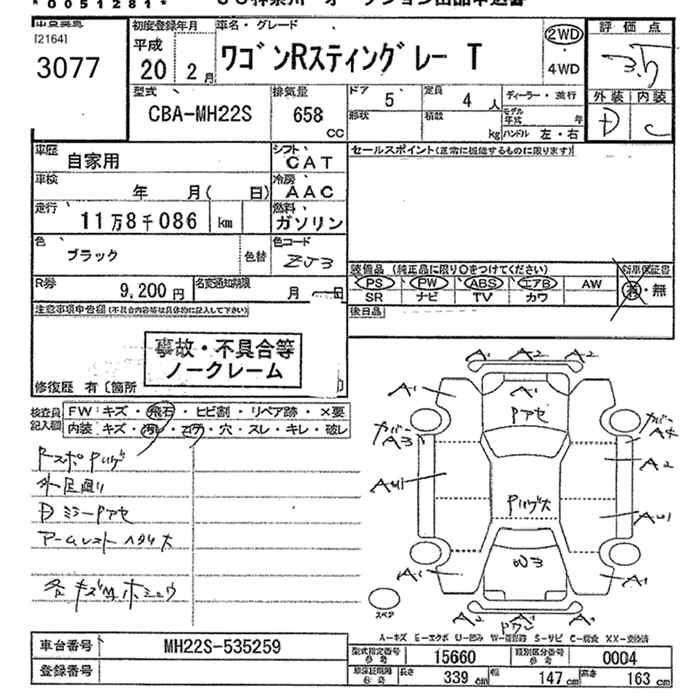 *0051281*
[2164]
3077
初度登録年月
平成
20 2月
車名・グレード
ワゴンRスティングレー T
2WD
・
4WD
評価点
3.5
外装 内装
D C
型式
CBA-MH22S
排気量
658
CC
ドア
5
定員
4 人
ディーラー・並行
形状
積載
kg
モデル年式 年
ハンドル 左・右
車歴
自家用
シフト
CAT
セールスポイント(正常に機能するものに限ります)
車検
年 月( 日)
冷房
AAC
走行
11万8千086 km
燃料
ガソリン
色
ブラック
色替
色コード
ZJ3
装備品 (純正品に限り○をつけてください)
新車保証書
PS PW ABS エアB AW
SR ナビ TV カワ
有・無
R券
9,200円
名変通知期限
月
後日品
注意事項申告欄(不具合内容等は具体的に記入して下さい)
事故・不具合等
ノークレーム
修復歴 有〔箇所
検査員記入欄
FW キズ・飛石・ヒビ割・リペア跡・×要
内装 キズ・汚レ・コゲ・穴・スレ・キレ・破レ
外足廻り
Dミラーアセ
A1 A2 A2
A1 A1 A1
Pアセ
カバー
A3
カバー
A4
A2
AU1
Pハゲ大
AU1
W3
A1
A1
A2 A2
スペア
A-キズ E-エクボ U-凹み W-補修跡 S-サビ C-腐食 XX-交換済
車台番号
MH22S-535259
登録番号
型式指定番号
参考
15660
類別区分番号
参考
0004
参考
長さ
339 cm
幅
147 cm
高さ
163 cm